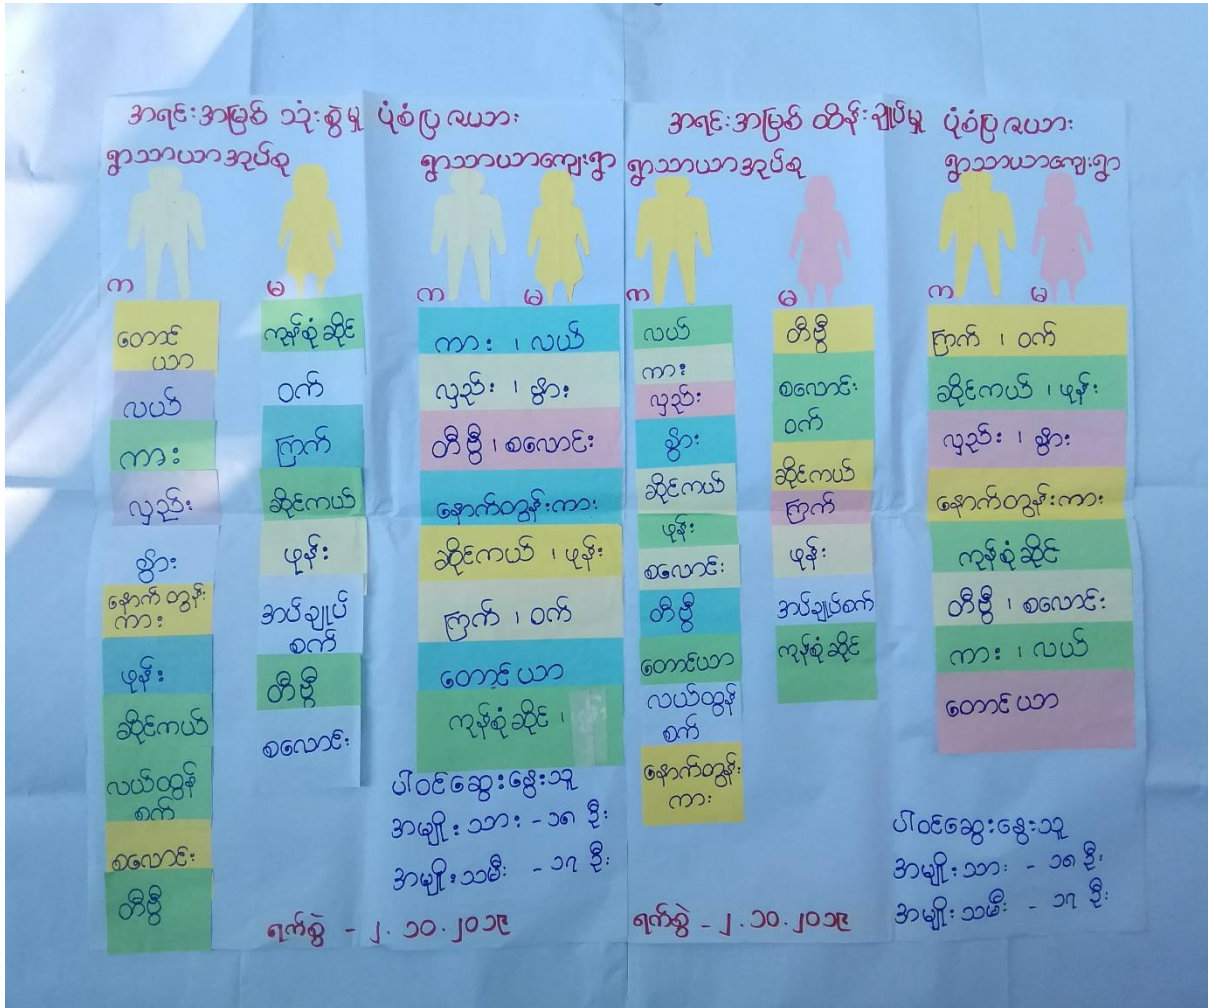 အရင်းအမြစ် သုံးစွဲမှု ပုံစံပြ ဇယား
ရွာသာယာအုပ်စု
က
မ
တောင်
ယာ
လယ်
ကား
လှည်း
နွား
နောက်တွန်း
ကား
ဖုန်း
ဆိုင်ကယ်
လယ်ထွန်
စက်
စလောင်း
တီဗွီ
ကုန်စုံဆိုင်
ဝက်
ကြက်
ဆိုင်ကယ်
ဖုန်း
အပ်ချုပ်
စက်
တီဗွီ
စလောင်း
ရွာသာယာကျေးရွာ
က
မ
ကား ၊ လယ်
လှည်း ၊ နွား
တီဗွီ ၊ စလောင်း
နောက်တွန်းကား
ဆိုင်ကယ် ၊ ဖုန်း
ကြက် ၊ ဝက်
တောင်ယာ
ကုန်စုံဆိုင် ၊
ပါဝင်ဆွေးနွေးသူ
အမျိုးသား - ၁၈ ဦး
အမျိုးသမီး - ၁၇ ဦး
ရက်စွဲ - ၂.၁၀.၂၀၁၉
အရင်းအမြစ် ထိန်းချုပ်မှု ပုံစံပြ ဇယား
ရွာသာယာအုပ်စု
က
မ
လယ်
ကား
လှည်း
နွား
ဆိုင်ကယ်
ဖုန်း
စလောင်း
တီဗွီ
တောင်ယာ
လယ်ထွန်
စက်
နောက်တွန်း
ကား
တီဗွီ
စလောင်း
ဝက်
ဆိုင်ကယ်
ကြက်
ဖုန်း
အပ်ချုပ်စက်
ကုန်စုံဆိုင်
ရွာသာယာကျေးရွာ
က
မ
ကြက် ၊ ဝက်
ဆိုင်ကယ် ၊ ဖုန်း
လှည်း ၊ နွား
နောက်တွန်းကား
ကုန်စုံဆိုင်
တီဗွီ ၊ စလောင်း
ကား ၊ လယ်
တောင်ယာ
ပါဝင်ဆွေးနွေးသူ
အမျိုးသား - ၁၈ ဦး
အမျိုးသမီး - ၁၇ ဦး
ရက်စွဲ - ၂.၁၀.၂၀၁၉